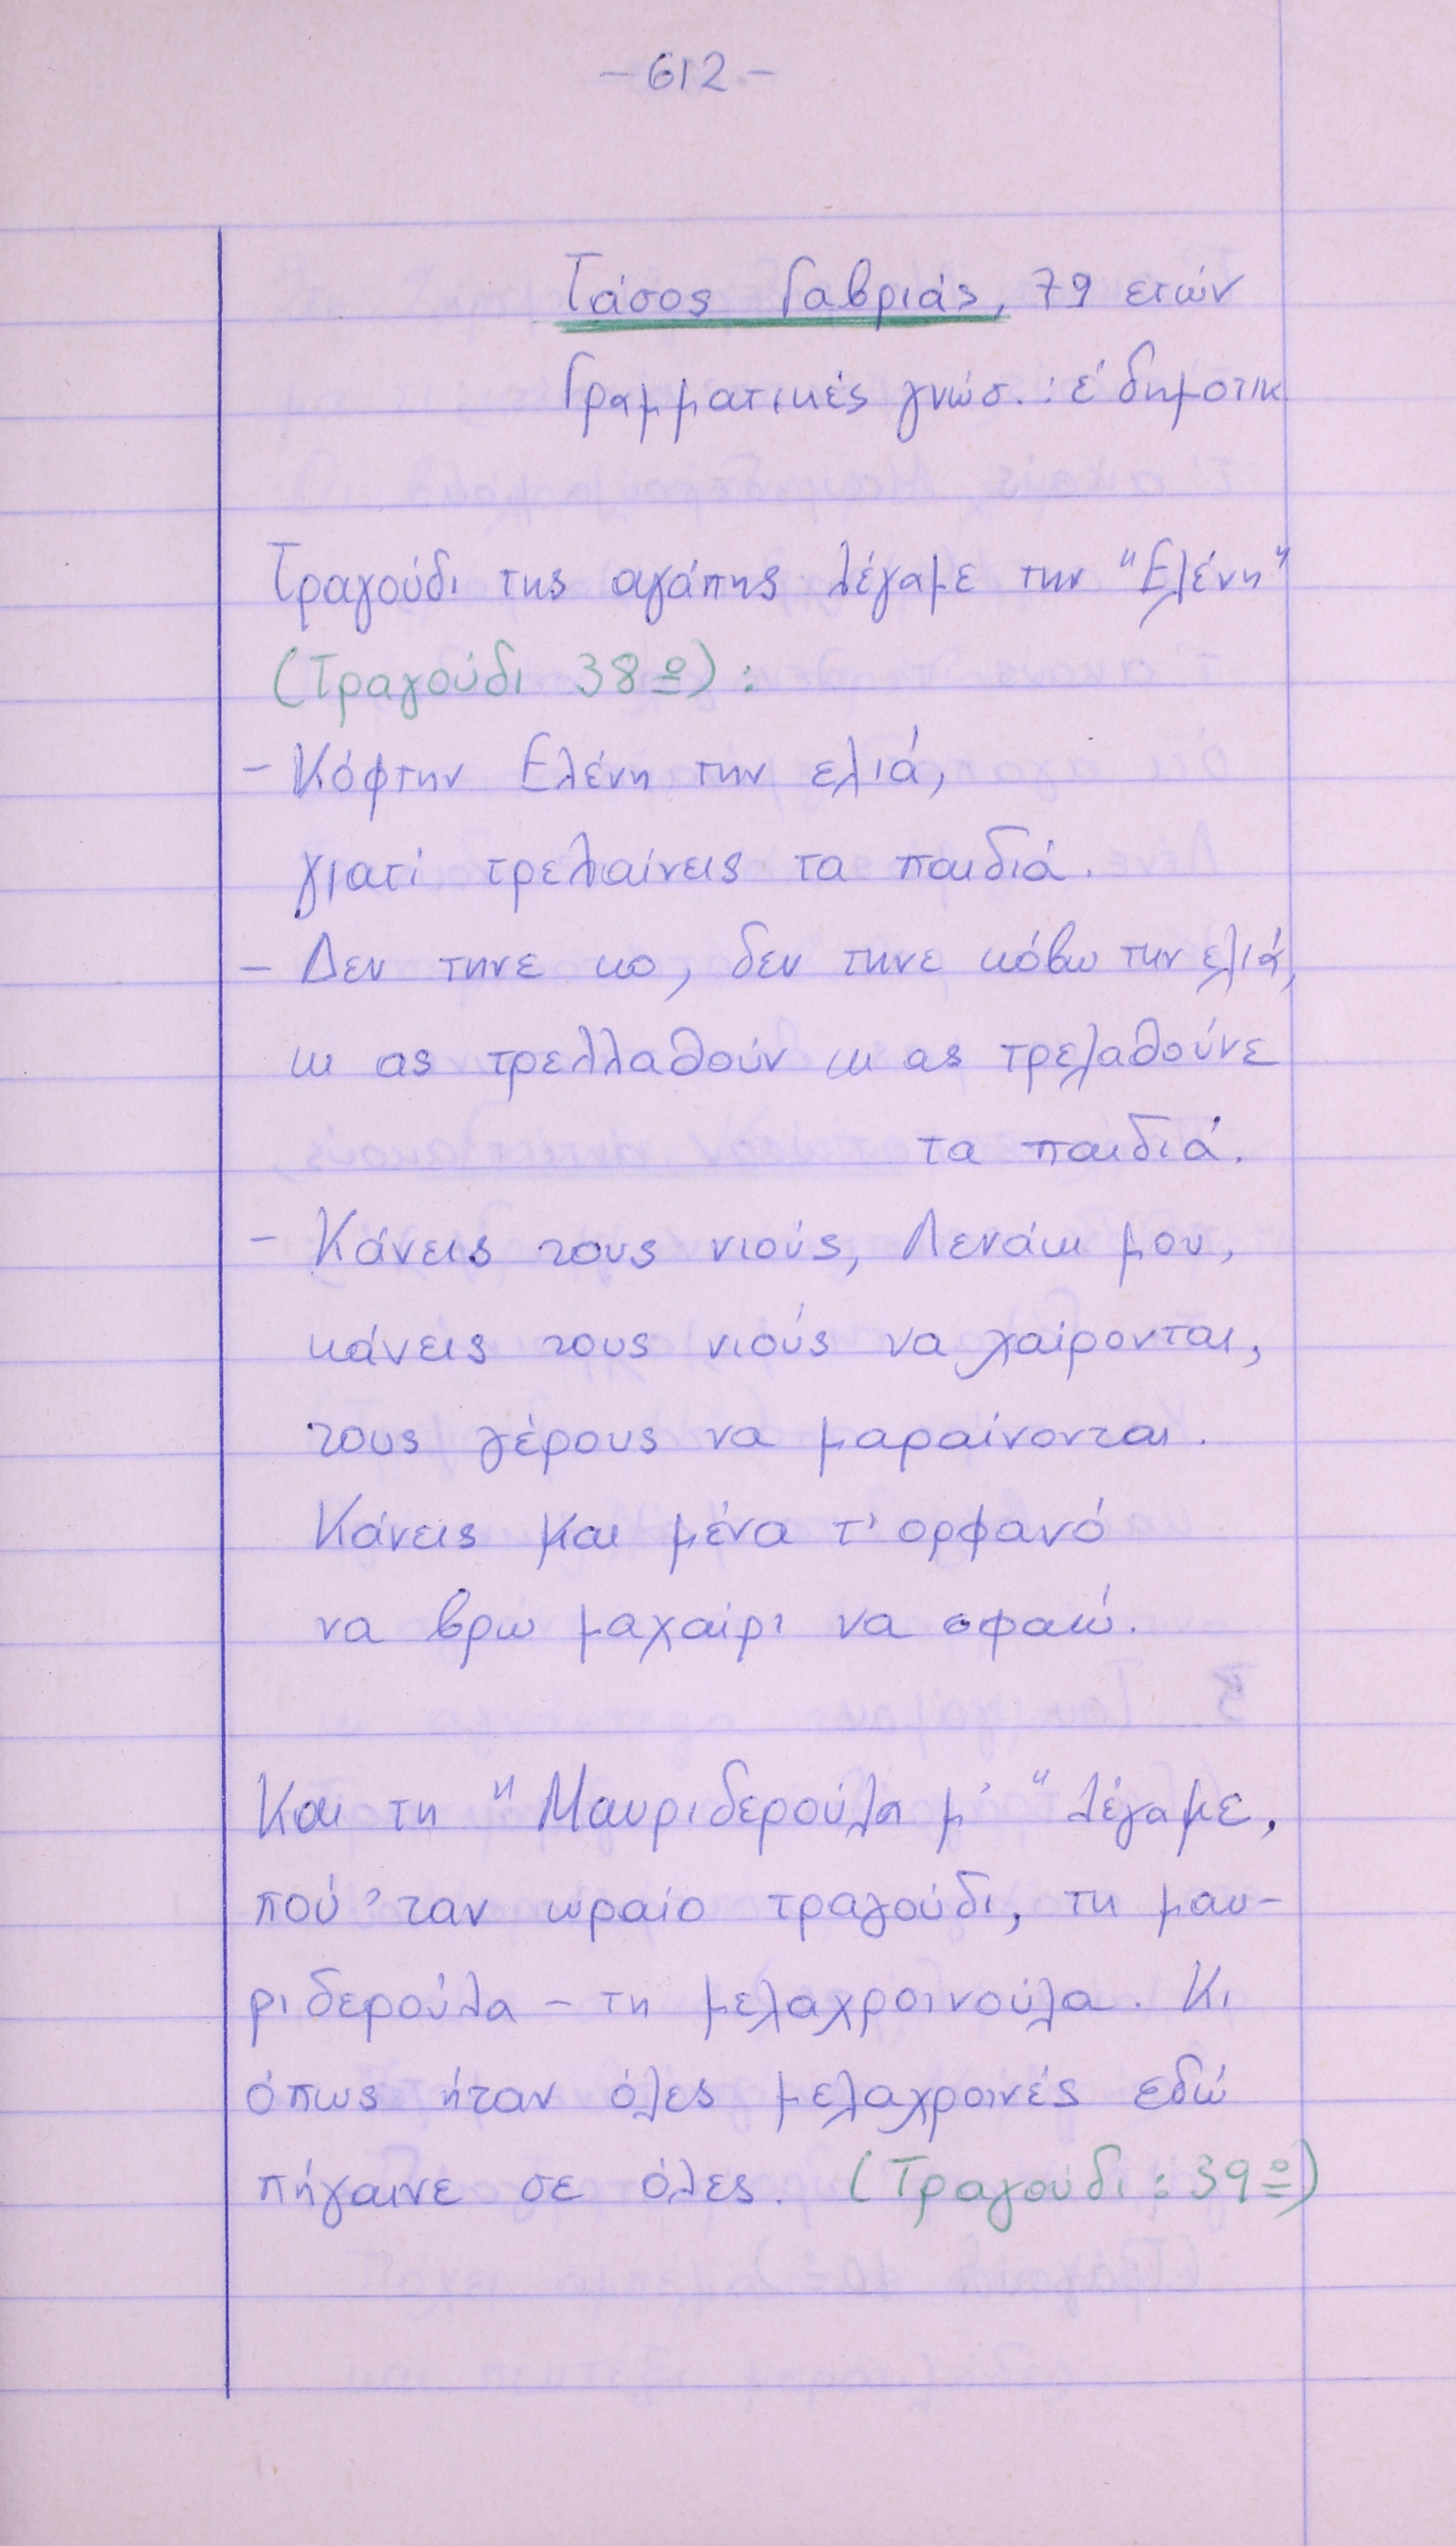 - 612 -
Τάσος Γαβριάς, 79 ετών
Γραμματικές γνώσ. : ε' δημοτικ.
Τραγούδι της αγάπης λέγαμε την "Ελένη"
(Τραγούδι 38º) :
- Κόφτην Ελένη την ελιά,
γιατί τρελαίνεις τα παιδιά.
- Δεν τηνε κο, δεν τηνε κόβω την ελιά,
κι ας τρελλαθούν κι ας τρελαθούνε
τα παιδιά.
- Κάνεις τους νιούς, Λενάκι μου,
κάνεις τους νιούς να χαίρονται,
τους γέρους να μαραίνονται.
Κάνεις και μένα τ' ορφανό
να βρω μαχαίρι να σφαώ.
Και τη "Μαυριδερούλα μ' " λέγαμε,
πού 'ταν ωραίο τραγούδι, τη μαυ-
ριδερούλα - τη μελαχροινούλα. Κι
όπως ήταν όλες μελαχροινές εδώ
πήγαινε σε όλες. (Τραγούδι : 39º)